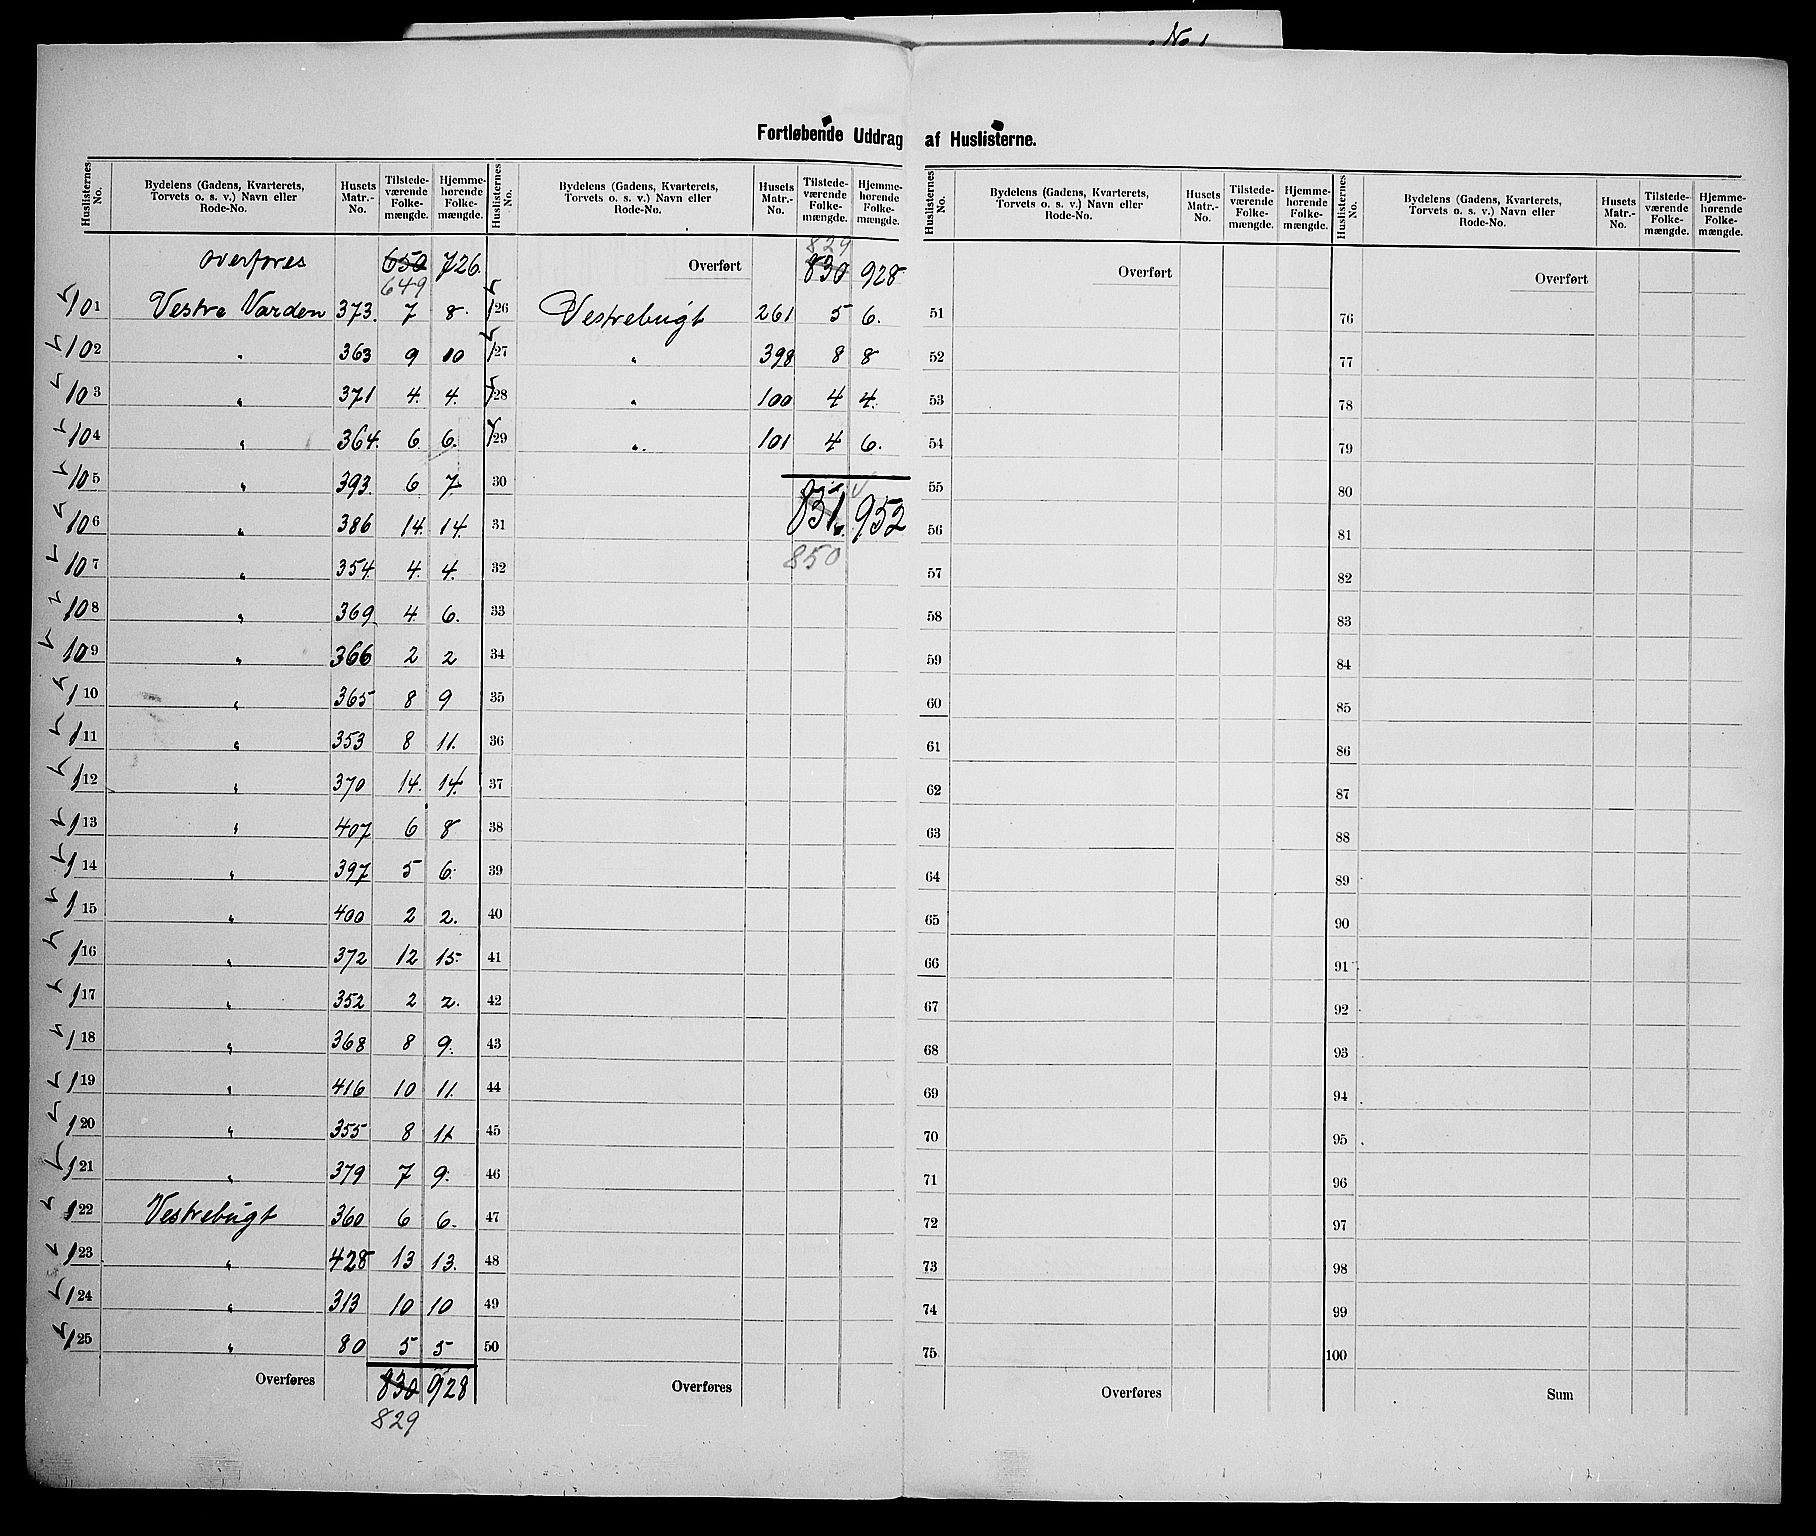 No 1
Fortløbende Uddrag af Huslisterne.
Huslisternes No. | Bydelens (Gadens, Kvarterets, Torvets o. s. v.) Navn eller Rode-No. | Husets Matr.-No. | Tilstedeværende Folkemængde. | Hjemmehørende Folkemængde.
overføres 650 726
649
101 Vestre Varden 373. 7 8
102 " 363 9 10
103 " 371 4. 4.
104 " 364. 6 6.
105 " 393. 6 7
106 " 386 14. 14.
107 " 354 4. 4.
108 " 369 4 6.
109 " 366 2 2
110 " 365 8 9
111 " 353 8 11.
112 " 370 14. 14.
113 " 407 6 8
114 " 397 5 6.
115 " 400 2 2.
116 " 372 12 15
117 " 352 2 2.
118 " 368 8 9.
119 " 416 10 11.
120 " 355 8 11
121 " 379 7 9.
122 Vestrebugt 360 6 6.
123 " 428 13 13.
124 " 313 10 10
125 " 80 5 5
Overføres 830 928
829
Huslisternes No. | Bydelens (Gadens, Kvarterets, Torvets o. s. v.) Navn eller Rode-No. | Husets Matr.-No. | Tilstedeværende Folkemængde. | Hjemmehørende Folkemængde.
829
Overført 830 928
126 Vestrebugt 261 5 6.
127 " 398 8 8
128 " 100 4 4.
129 " 101 4 6.
30 952
31
850
32
33
34
35
36
37
38
39
40
41
42
43
44
45
46
47
48
49
50
Overføres
Huslisternes No. | Bydelens (Gadens, Kvarterets, Torvets o. s. v.) Navn eller Rode-No. | Husets Matr.-No. | Tilstedeværende Folkemængde. | Hjemmehørende Folkemængde.
Overført
51
52
53
54
55
56
57
58
59
60
61
62
63
64
65
66
67
68
69
70
71
72
73
74
75
Overføres
Huslisternes No. | Bydelens (Gadens, Kvarterets, Torvets o. s. v.) Navn eller Rode-No. | Husets Matr.-No. | Tilstedeværende Folkemængde. | Hjemmehørende Folkemængde.
Overført
76
77
78
79
80
81
82
83
84
85
86
87
88
89
90
91
92
93
94
95
96
97
98
99
100
Sum